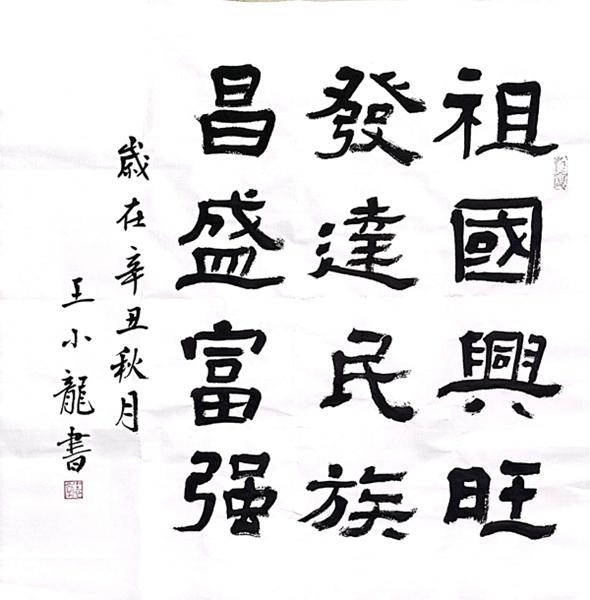 祖國興旺
發達民族
昌盛富强
歲在辛丑秋月
王小龍書